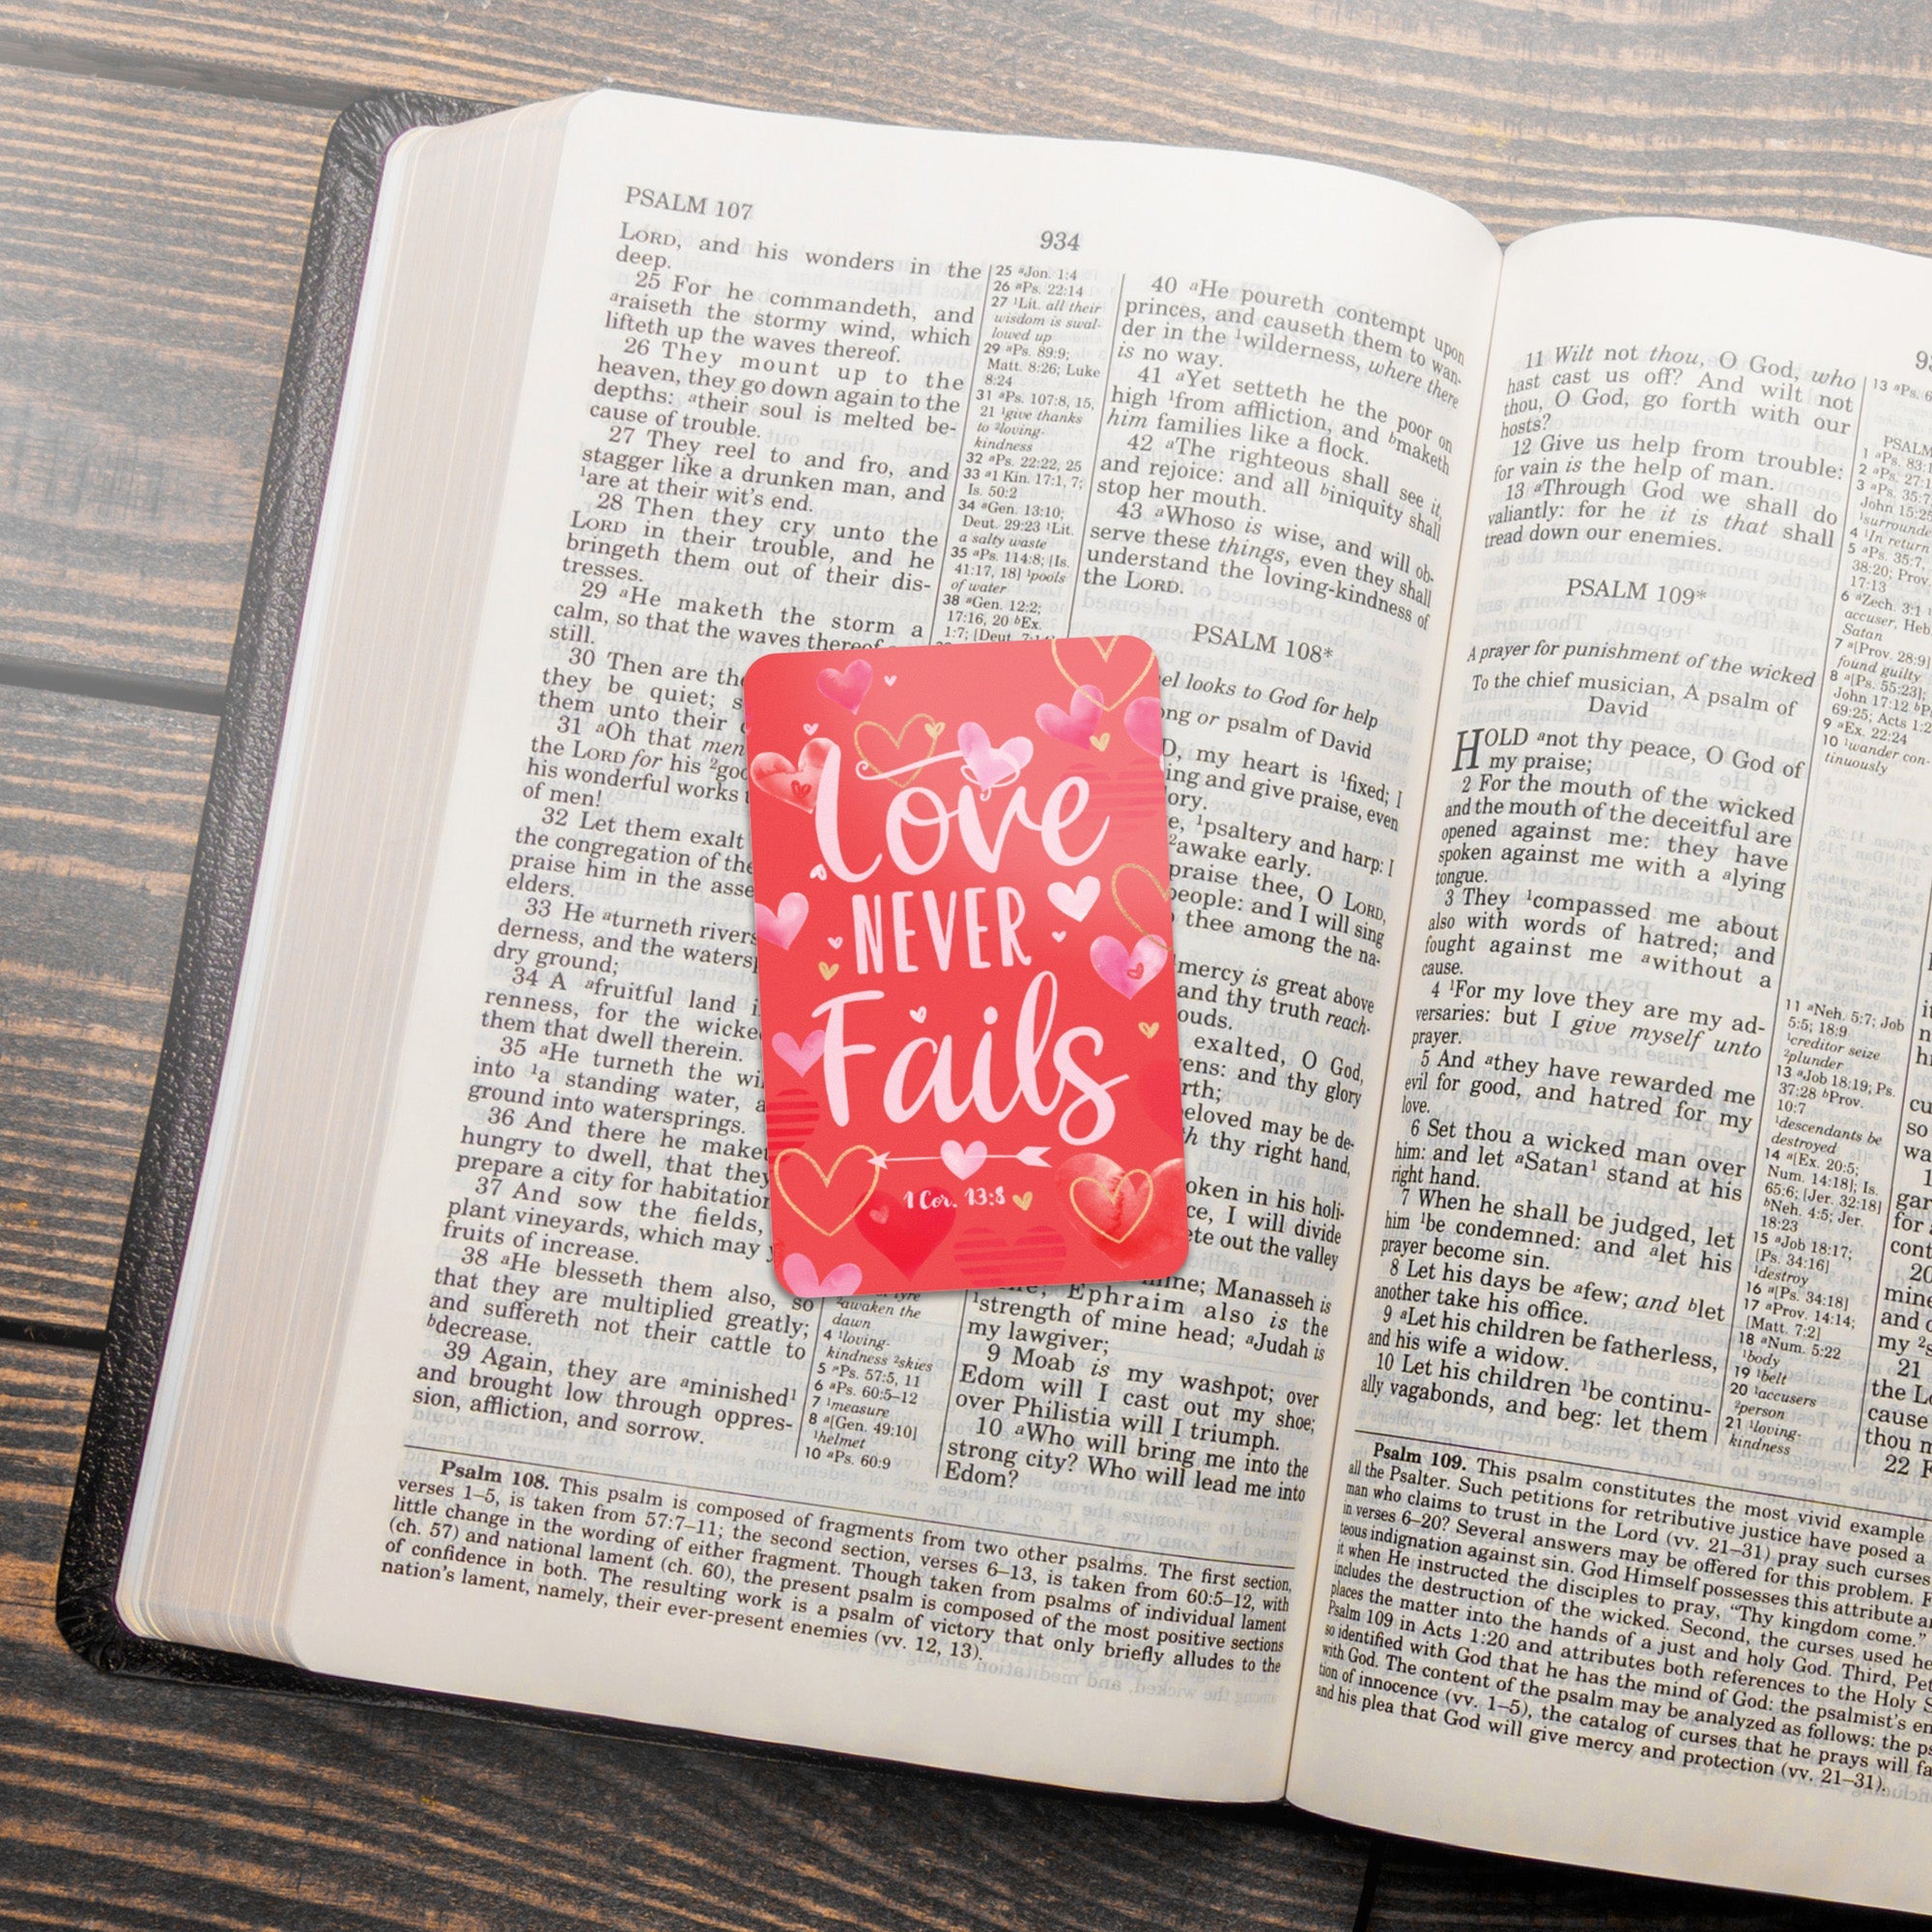 PSALM 107
934
LORD, and his wonders in the
deep.
25 For he commandeth, and
ᵃraiseth the stormy wind, which
lifteth up the waves thereof.
26 They mount up to the
heaven, they go down again to the
depths: ᵃtheir soul is melted be-
cause of trouble.
27 They reel to and fro, and
stagger like a drunken man, and
¹are at their wit's end.
28 Then they cry unto the
LORD in their trouble, and he
bringeth them out of their dis-
tresses.
29 ᵃHe maketh the storm a
calm, so that the waves thereof
still.
30 Then are the
they be quiet;
them unto their
31 ᵃOh that men
the LORD for his
his wonderful works
of men!
32 Let them exalt
the congregation of the
praise him in the
elders.
33 He ᵃturneth rivers
derness, and the
dry ground;
34 A ᵃfruitful land
renness, for the
them that dwell therein.
35 ᵃHe turneth the
into ¹a standing water,
ground into watersprings.
36 And there he
hungry to dwell, that they
prepare a city for
37 And sow the fields,
plant vineyards, which may
fruits of increase.
38 ᵃHe blesseth them also, so
that they are multiplied greatly;
and suffereth not their cattle to
ᵇdecrease.
39 Again, they are ᵃminished¹
and brought low through oppres-
sion, affliction, and sorrow.
25 ᵃJon. 1:4
26 ᵃPs. 22:14
27 ¹Lit. all their
wisdom is swal-
lowed up
29 ᵃPs. 89:9;
Matt. 8:26; Luke
8:24
31 ᵃPs. 107:8, 15,
21 ¹give thanks
to ²loving-
kindness
32 ᵃPs. 22:22, 25
33 ᵃ1 Kin. 17:1, 7;
Is. 50:2
34 ᵃGen. 13:10;
Deut. 29:23 ¹Lit.
a salty waste
35 ᵃPs. 114:8; [Is.
41:17, 18] ¹pools
of water
38 ᵃGen. 12:2;
17:16, 20 ᵇEx.
1:7; [Deut. 7:14]
²awaken the
dawn
4 ¹loving-
kindness ²skies
5 ᵃPs. 57:5, 11
6 ᵃPs. 60:5–12
7 ¹measure
8 ᵃ[Gen. 49:10]
¹helmet
10 ᵃPs. 60:9
40 ᵃHe poureth contempt upon
princes, and causeth them to wan-
der in the ¹wilderness, where there
is no way.
41 ᵃYet setteth he the poor on
high ¹from affliction, and ᵇmaketh
him families like a flock.
42 ᵃThe righteous shall see it,
and rejoice: and all ᵇiniquity shall
stop her mouth.
43 ᵃWhoso is wise, and will ob-
serve these things, even they shall
understand the loving-kindness of
the LORD.
PSALM 108*
looks to God for help
or psalm of David
my heart is ¹fixed; I
and give praise, even
¹psaltery and harp: I
²awake early.
praise thee, O LORD,
people: and I will sing
thee among the na-
mercy is great above
and thy truth reach-
exalted, O God,
and thy glory
may be de-
thy right hand,
in his holi-
I will divide
out the valley
mine; Manasseh is
Ephraim also is the
¹strength of mine head; ᵃJudah is
my lawgiver;
9 Moab is my washpot; over
Edom will I cast out my shoe;
over Philistia will I triumph.
10 ᵃWho will bring me into the
strong city? Who will lead me into
Edom?
Love
NEVER
Fails
1 Cor. 13:8
Psalm 108. This psalm is composed of fragments from two other psalms. The first section,
verses 1–5, is taken from 57:7–11; the second section, verses 6–13, is taken from 60:5–12, with
little change in the wording of either fragment. Though taken from psalms of individual lament
(ch. 57) and national lament (ch. 60), the present psalm is composed of the most positive sections
of confidence in both. The resulting work is a psalm of victory that only briefly alludes to the
nation's lament, namely, their ever-present enemies (vv. 12, 13).
11 Wilt not thou, O God, who
hast cast us off? And wilt not
thou, O God, go forth with our
hosts?
12 Give us help from trouble:
for vain is the help of man.
13 ᵃThrough God we shall do
valiantly: for he it is that shall
tread down our enemies.
PSALM 109*
A prayer for punishment of the wicked
To the chief musician, A psalm of
David
HOLD ᵃnot thy peace, O God of
my praise;
2 For the mouth of the wicked
and the mouth of the deceitful are
opened against me: they have
spoken against me with a ᵃlying
tongue.
3 They ¹compassed me about
also with words of hatred; and
fought against me ᵃwithout a
cause.
4 ¹For my love they are my ad-
versaries: but I give myself unto
prayer.
5 And ᵃthey have rewarded me
evil for good, and hatred for my
love.
6 Set thou a wicked man over
him: and let ᵃSatan¹ stand at his
right hand.
7 When he shall be judged, let
him ¹be condemned: and ᵃlet his
prayer become sin.
8 Let his days be ᵃfew; and ᵇlet
another take his office.
9 ᵃLet his children be fatherless,
and his wife a widow.
10 Let his children ¹be continu-
ally vagabonds, and beg: let them
PSALM
1 ᵃPs. 83:1
2 ᵃPs. 27:1
3 ᵃPs. 35:7
John 15:25
4 ¹In return
5 ᵃPs. 35:7,
38:20; Prov.
17:13
6 ᵃZech. 3:1
accuser, Heb.
Satan
7 ᵃ[Prov. 28:9]
found guilty
8 ᵃ[Ps. 55:23];
John 17:12
69:25; Acts
9 ᵃEx. 22:24
10 ¹wander con-
tinuously
11 ᵃNeh. 5:7; Job
5:5; 18:9
¹creditor seize
²plunder
13 ᵃJob 18:19; Ps.
37:28 ᵇProv.
10:7
¹descendants be
destroyed
14 ᵃ[Ex. 20:5;
Num. 14:18]; Is.
65:6; [Jer. 32:18]
ᵇNeh. 4:5; Jer.
18:23
15 ᵃJob 18:17;
[Ps. 34:16]
¹destroy
16 ᵃ[Ps. 34:18]
17 ᵃProv. 14:14;
[Matt. 7:2]
18 ᵃNum. 5:22
¹body
19 ¹belt
20 ¹accusers
²person
21 ¹loving-
kindness
Psalm 109. This psalm constitutes the most vivid example
all the Psalter. Such petitions for retributive justice have posed a
man who claims to trust in the Lord (vv. 21–31) pray such curses
in verses 6–20? Several answers may be offered for this problem.
teous indignation against sin. God Himself possesses this attribute
it when He instructed the disciples to pray, “Thy kingdom come.”
includes the destruction of the wicked. Second, the curses used
places the matter into the hands of a just and holy God. Third,
Psalm 109 in Acts 1:20 and attributes both references to the Holy
so identified with God that he has the mind of God: the psalmist's
with God. The content of the psalm may be analyzed as follows: the
tion of innocence (vv. 1–5), the catalog of curses that he prays will
and his plea that God will give mercy and protection (vv. 21–31).